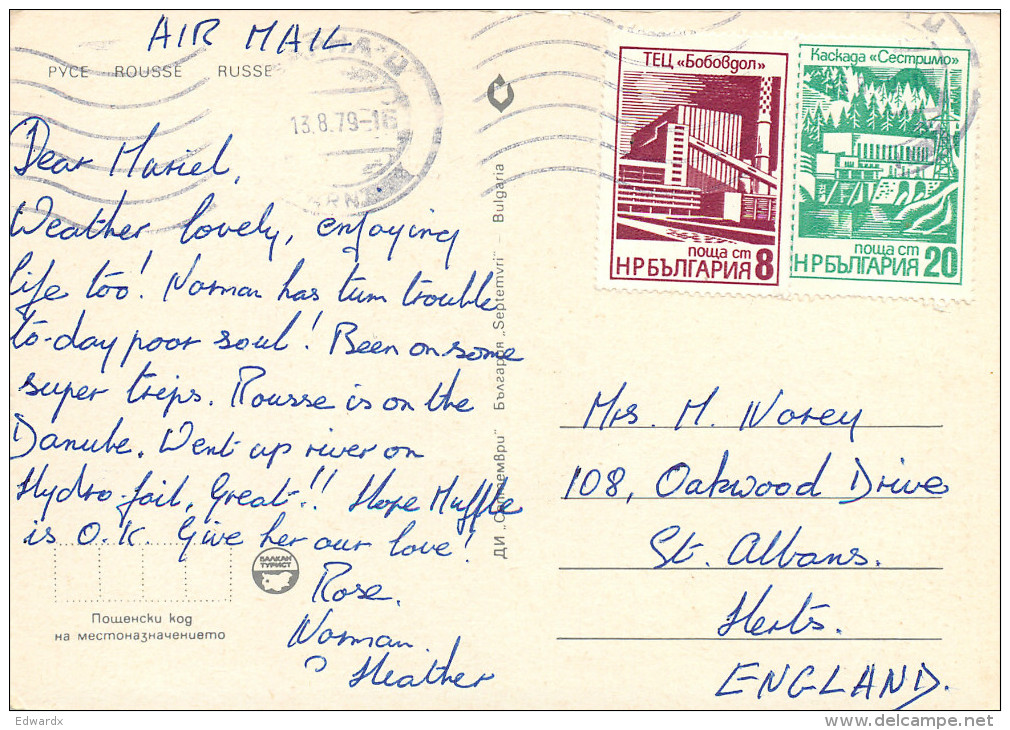 AIR MAIL
РУСЕ ROUSSE RUSSE
13.8.79-16
Dear Muriel,
Weather lovely, enjoying
life too! Norman has tum trouble
to-day poor soul! Been on some
super trips. Rousse is on the
Danube. Went up river on
Hydro-foil, Great!! Hope Muffle
is O.K. Give her our love!
Rose.
Norman.
Heather
БАЛКАН
ТУРИСТ
Пощенски код
на местоназначението
ДИ „Септември" България „Septemvri" — Bulgaria
ТЕЦ «Бобовдол»
поща ст
НРБЪЛГАРИЯ 8
Каскада «Сестримо»
поща ст
НРБЪЛГАРИЯ 20
Mrs. M. Novey
108, Oakwood Drive
St. Albans.
Herts.
ENGLAND.
Edwardx
www.delcampe.net